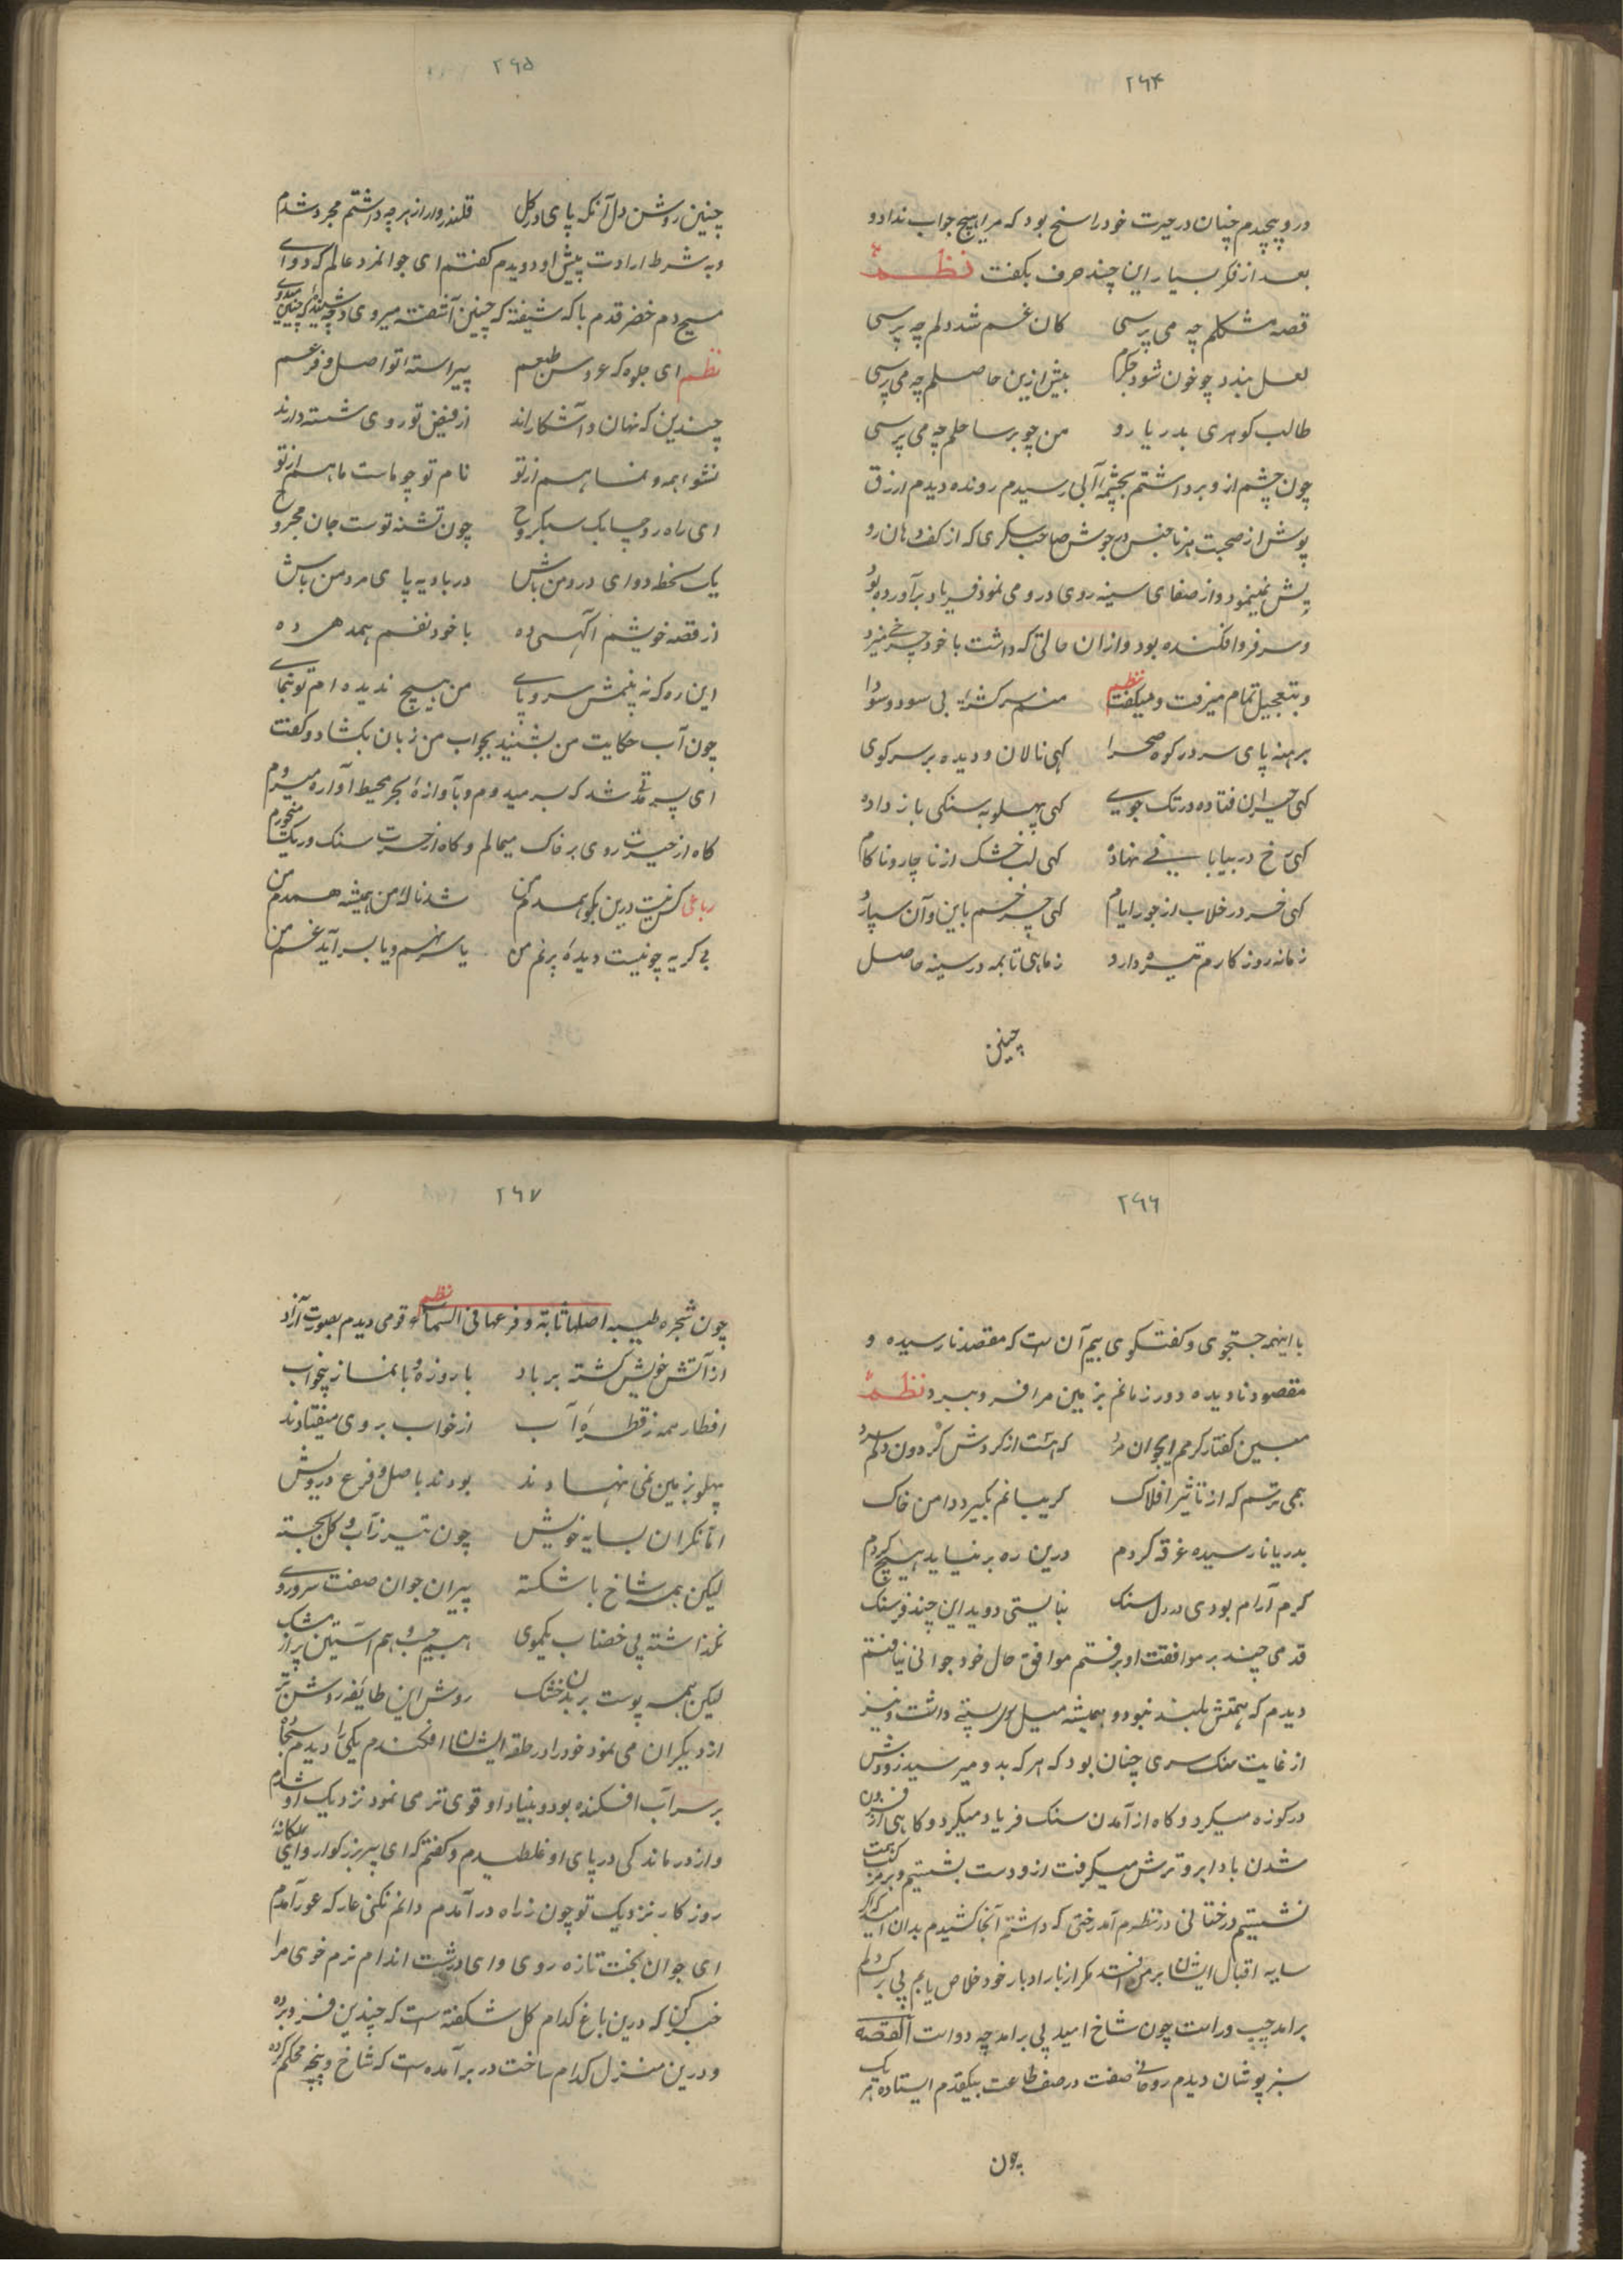 ۲۶۴
درو پیچیدم چنان در حیرت خود راسخ بود که مرا هیچ جواب نداد و
بعد از فکر بسیار این چند حرف بگفت نظم
قصه مشکلم چه می پرسی کان غم شد دلم چه پرسی
لعل بندد چو خون شود جکرم بیش ازین حاصلم چه می پرسی
طالب کوهری بدریا رو من چو بر ساحلم چه می پرسی
چون چشم ازو برداشتم بچشمه آبی رسیدم رونده دیدم ازرق
پوش از صحبت هر ناجنس در جوش صاحب سکری که از کف دهان رو
پش نمینمود و از صفای سینه روی درو می نمود فریاد برآورده بود
و سر فرو افکنده بود و از آن حالتی که داشت با خود چرخی میزد
و بتعجیل تمام میرفت و میکفت نظم منم سرکشته بی سود و سودا
برهنه پای سر در کوه و صحرا کهی نالان و دیده بر سر کوی
کهی حیران فتاده در تک جوی کهی پهلو به سنکی باز داده
کهی رخ در بیابانی نهاده کهی لب خشک از ناچار و ناکام
کهی خر در خلاب از جور ایام کهی چرخم باین و آن سپارد
زمانه روز کارم تیره دارد ز ماهی تا بمه در سینه حاصل
چنین
۲۶۵
چنین روشن دل آنکه پای در کل قلندروار از هر چه داشتم مجرد شدم
و به شرط ارادت پیش او دویدم کفتم ای جوانمرد عالم کرد و ای
مسیح دم خضر قدم با که شیفتۀ که چنین آشفته میروی و چه شنیدۀ که چنین میدوی
نظم ای جلوه که عروس طبعم پیراسته از تو اصل و فرعم
چندین که نهان و آشکاراند از فیض تو روی شسته دارند
نشو همه و نما هم از تو نام تو چو ماست ما هم از تو
ای راه رو چابک سبکروح چون تشنه توست جان مجروح
یک لحظه دوای درد من باش در بادیه پای مرد من باش
از قصه خویشم آکهی ده با خود نفسم همدهی ده
این ره که نه بینمش سر و پای من هیچ ندیده ام تو بنمای
چون آب حکایت من بشنید بجواب من زبان بکشاد و کفت
ای پسر مدتی شد که بسر میدوم و بآوازۀ بحر محیط آواره میروم
کاه از حیرت روی بر خاک میمالم و کاه از حسرت سنک و ریک میخورم
رباعی کس نیست درین بکو همدم من شد نالۀ من همیشه همدم من
بی کریه چو نیست دیدۀ پر نم من یا سر نهم و یا بسر آید غم من
۲۶۶
با اینهمه جستجوی و کفتکوی بیم آن است که مقصد نارسیده و
مقصود نادیده دور زمانم بزمین مرا فرو برد نظم
مبین کفتار کرمم ایجوان مرد که هست از کردش کردون دلم سرد
همی ترسم که از تاثیر افلاک کریبانم بکیرد دامن خاک
بدریا نارسیده غرق کردم درین ره برنیاید هیچ کردم
کرم آرام بودی در دل سنک نبایستی دوید این چند فرسنک
قدمی چند بر موافقت او برفتم موافق حال خود جوانی نیافتم
دیدم که همتش بلند نبود و همیشه میل سوی پستی داشت و نیز
از غایت سبک سری چنان بود که هر که بدو میرسید زودش
در کوزه میکرد و کاه از آمدن سنک فریاد میکرد و کاهی از فزون
شدن باد ابرو ترش میکرفت ازو دست بشستیم و بر مرکب همت
نشستیم درختانی در نظرم آمد رختی که داشتم آنجا کشیدم بدان امید که اکر
سایه اقبال ایشان بر من افتد مکر از بار ادبار خود خلاص یابم پی بر کردم
برامد چپ و راست چون شاخ امید پی برامد چه دواست القصه
سبز پوشان دیدم روحانی صفت در صف طاعت بیکقدم ایستاده هر یک
چون
۲۶۷
چون شجره طیبه اصلها ثابته و فرعها فی السماء نظم قومی دیدم بصورت آزاد
از آتش خویش کشته بر باد با روزه و با نماز بیخواب
افطار همه ز قطرۀ آب از خواب بروی میفتادند
پهلو بزمین نمی نهادند بودند باصل و فرع درویش
اما نکران بسایه خویش چون تیر ز آب و کل بجسته
لیکن همه شاخ با شکسته پیران جوان صفت سر و روی
نکذاشته بی خضاب یکموی هم جیب و هم آستین پر از مشک
لیکن همه پوست بر بدن خشک روش این طایفه روشن تر
از دیکران می نمود خود را در حلقه ایشان افکندم یکی را دیدم سجاده
بر سر آب افکنده بود و بنیاد او قوی تر می نمود نزدیک او شدم
و از درماندکی در پای او غلطیدم و کفتم که ای پیر بزرکوار و ای یکانه
روزکار نزدیک تو چون ز راه در آمدم دانم نکنی عار که عور آمدم
ای جوان بخت تازه روی و ای درشت اندام نرم خوی مرا
خبر کن که درین باغ کدام کل شکفته است که چندین فرو برده
و درین منزل کدام ساخت در بر آمده ست که شاخ و پنجه محکم کرده